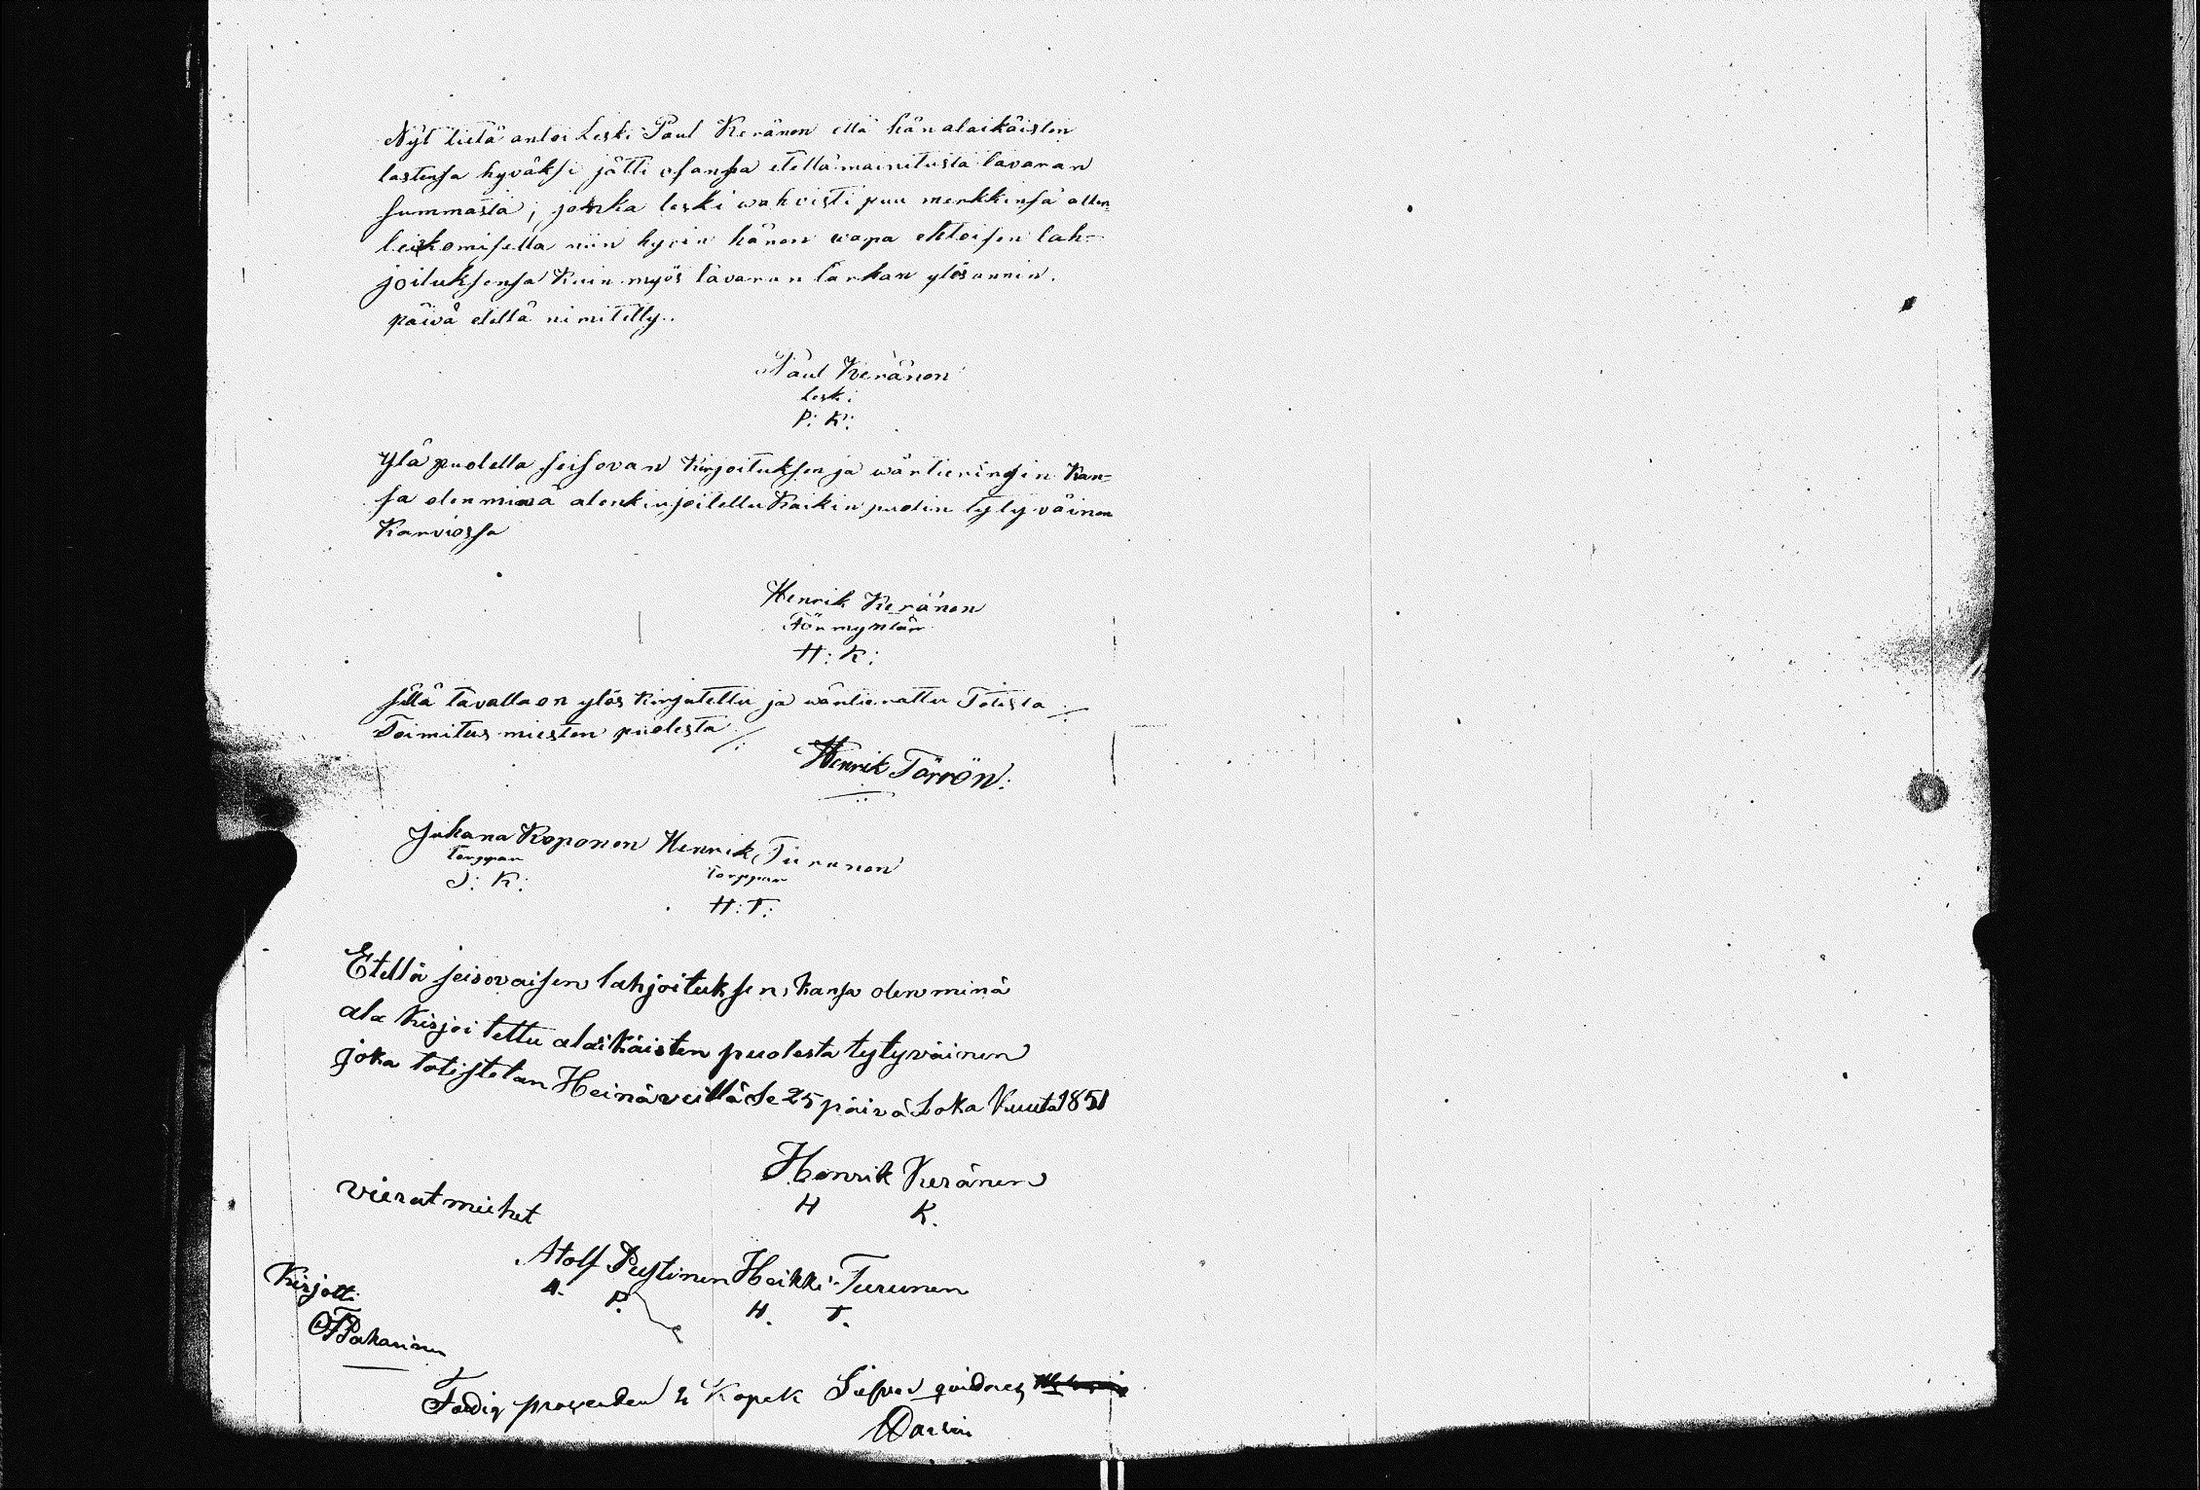 Nyt tietä antoi Leski Paul Keränen että hän alaikäisten
lastensa hyväksi jätti osansa etellämainitusta tavaran
summasta, jonka leski wahvisti puu merkkinsä allen
leikomisella niin hyvin hänen wapa ehtoisen lah=
joituksensa kuin myös tavaran tarkan ylösannin.
päivä etellä nimitetty.
Paul Keränen
Leski
P: K:
Ylä puolella seisovan kirjoituksen ja wärtieringin kan=
sa olen minä alenkirjoitettu kaikin puolin tytyväinen
Karviossa
Henrik Keränen
Förmyntäri
H: K:
sillä tavalla on ylös kirjutettu ja wärtierattu Totista
Toimitus miesten puolesta
Henrik Törrön:
Juhana Koponen Henrik Turunen
torppar torppar
J: K:
H: T:
Etellä seisovaisen lahjoituksen kansa olen minä
ala kirjoi tettu alaikäisten puolesta tytyväinen
joka totistetan Heinäveillä Se 25 päivä Loka Kuuta 1851
Henrik Keränen
H K.
vierat miehet
Atolf Pustinen Heikki Turunen
A. P. H. T.
Kirjotti
Pakarinen
kopek